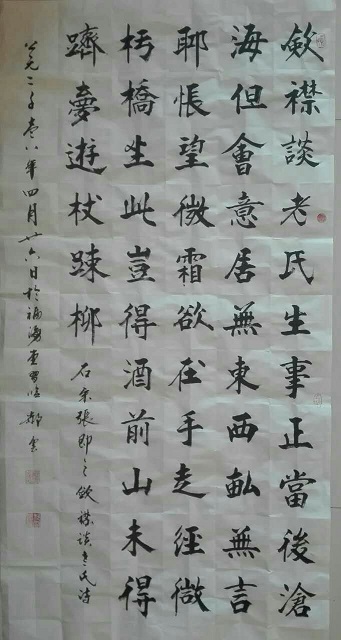 斂襟談老氏生事正當後滄
海但會意居無東西畝無言
聊悵望微霜欲在手走經微
杇橋坐此豈得酒前山未得
躋夢遊杖踈柳
右宋張即之斂襟談老氏詩
公元二千壹八年四月廿六日於福海